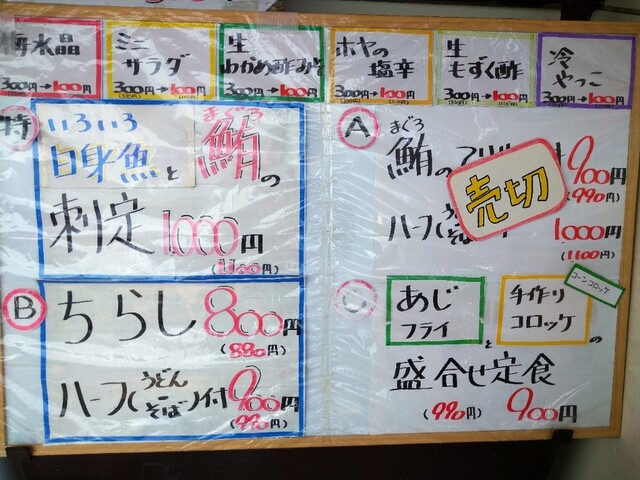 梅水晶
300円→100円
ミニ
サラダ
300円→100円
生
わかめ酢みそ
300円→100円
ホヤの
塩辛
300円→100円
生
もずく酢
300円→100円
冷
やっこ
300円→100円
特
いろいろ
白身魚と
まぐろ
鮪の
刺定 1000円
(1100円)
A
まぐろ
鮪の
900円
(990円)
売切
ハーフ(うどん
そば
1000円
(1100円)
B
ちらし 800円
(880円)
ハーフ(うどん
そば)付 900円
(990円)
C
あじ
フライ
と
手作り
コロッケ
の
コーンコロッケ
盛合せ定食
(990円) 900円